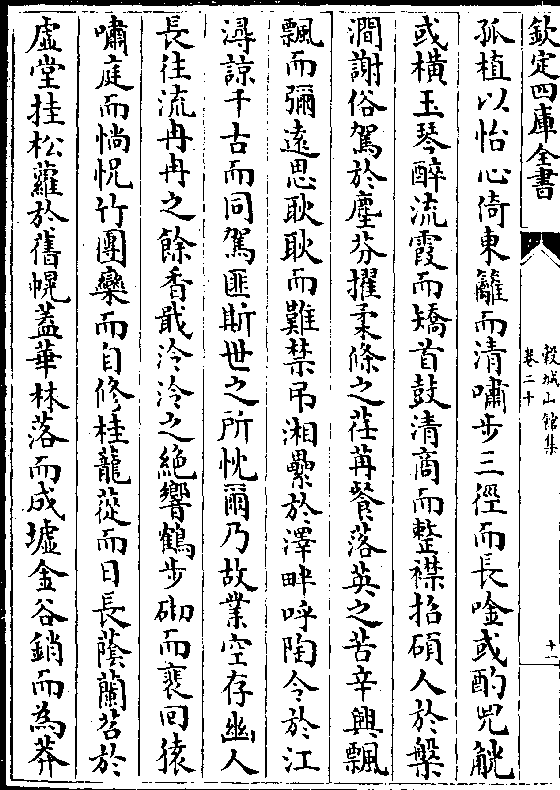 欽定四庫全書
穀城山館集
卷二十
十一
孤植以怡心倚東籬而清嘯步三徑而長唫或酌兕觥
或橫玉琴醉流霞而矯首鼓清商而整襟招碩人於槃
澗謝俗駕於塵芬擢柔條之荏苒餐落英之苦辛興飄
飄而彌遠思耿耿而難禁吊湘纍於澤畔呼陶令於江
潯諒千古而同駕匪斯世之所忱爾乃故業空存幽人
長往流冉冉之餘香戢泠泠之絶響鶴步砌而裵回猿
嘯庭而惝怳竹團欒而自修桂龍蓯而日長蔭蘭苕於
虛堂挂松蘿於舊幌蓋華林落而成墟金谷銷而為莽